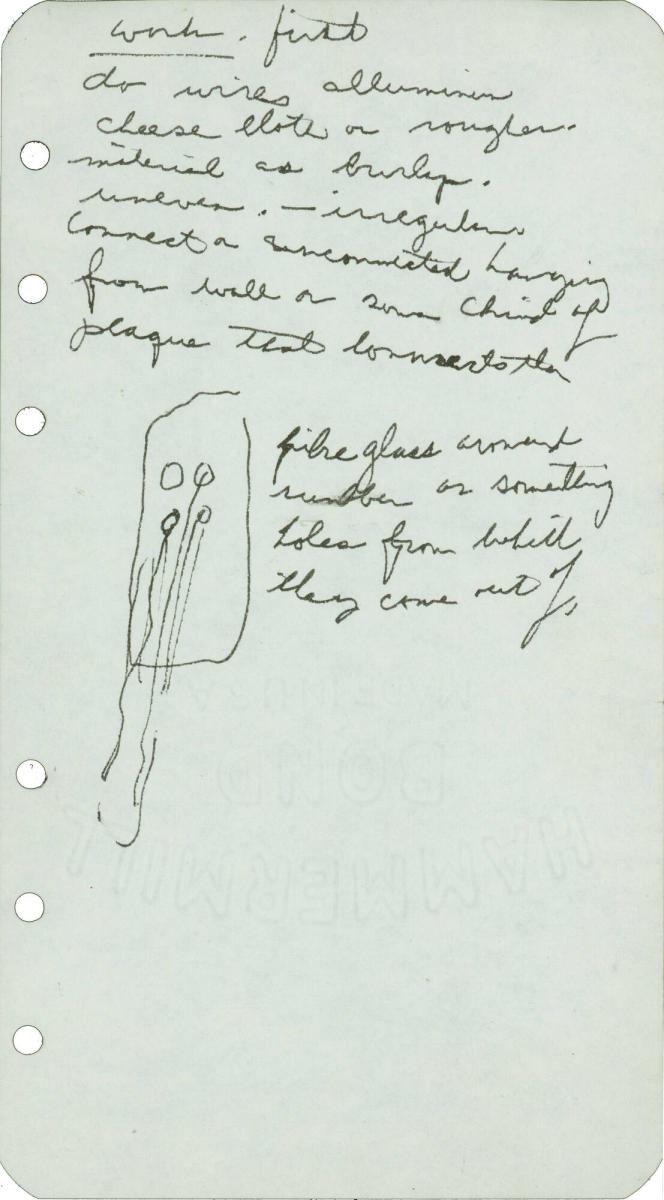 work. first
do wires alluminum
cheese cloth or rougher.
material as burlap.
uneven. — irregular.
connect or unconnected hanging
from wall or some chind of
plaque that connects the
fibre glass around
rubber or something
holes from which
they come out of,
MADE IN U.S.A.
BOND
HAMMERMILL